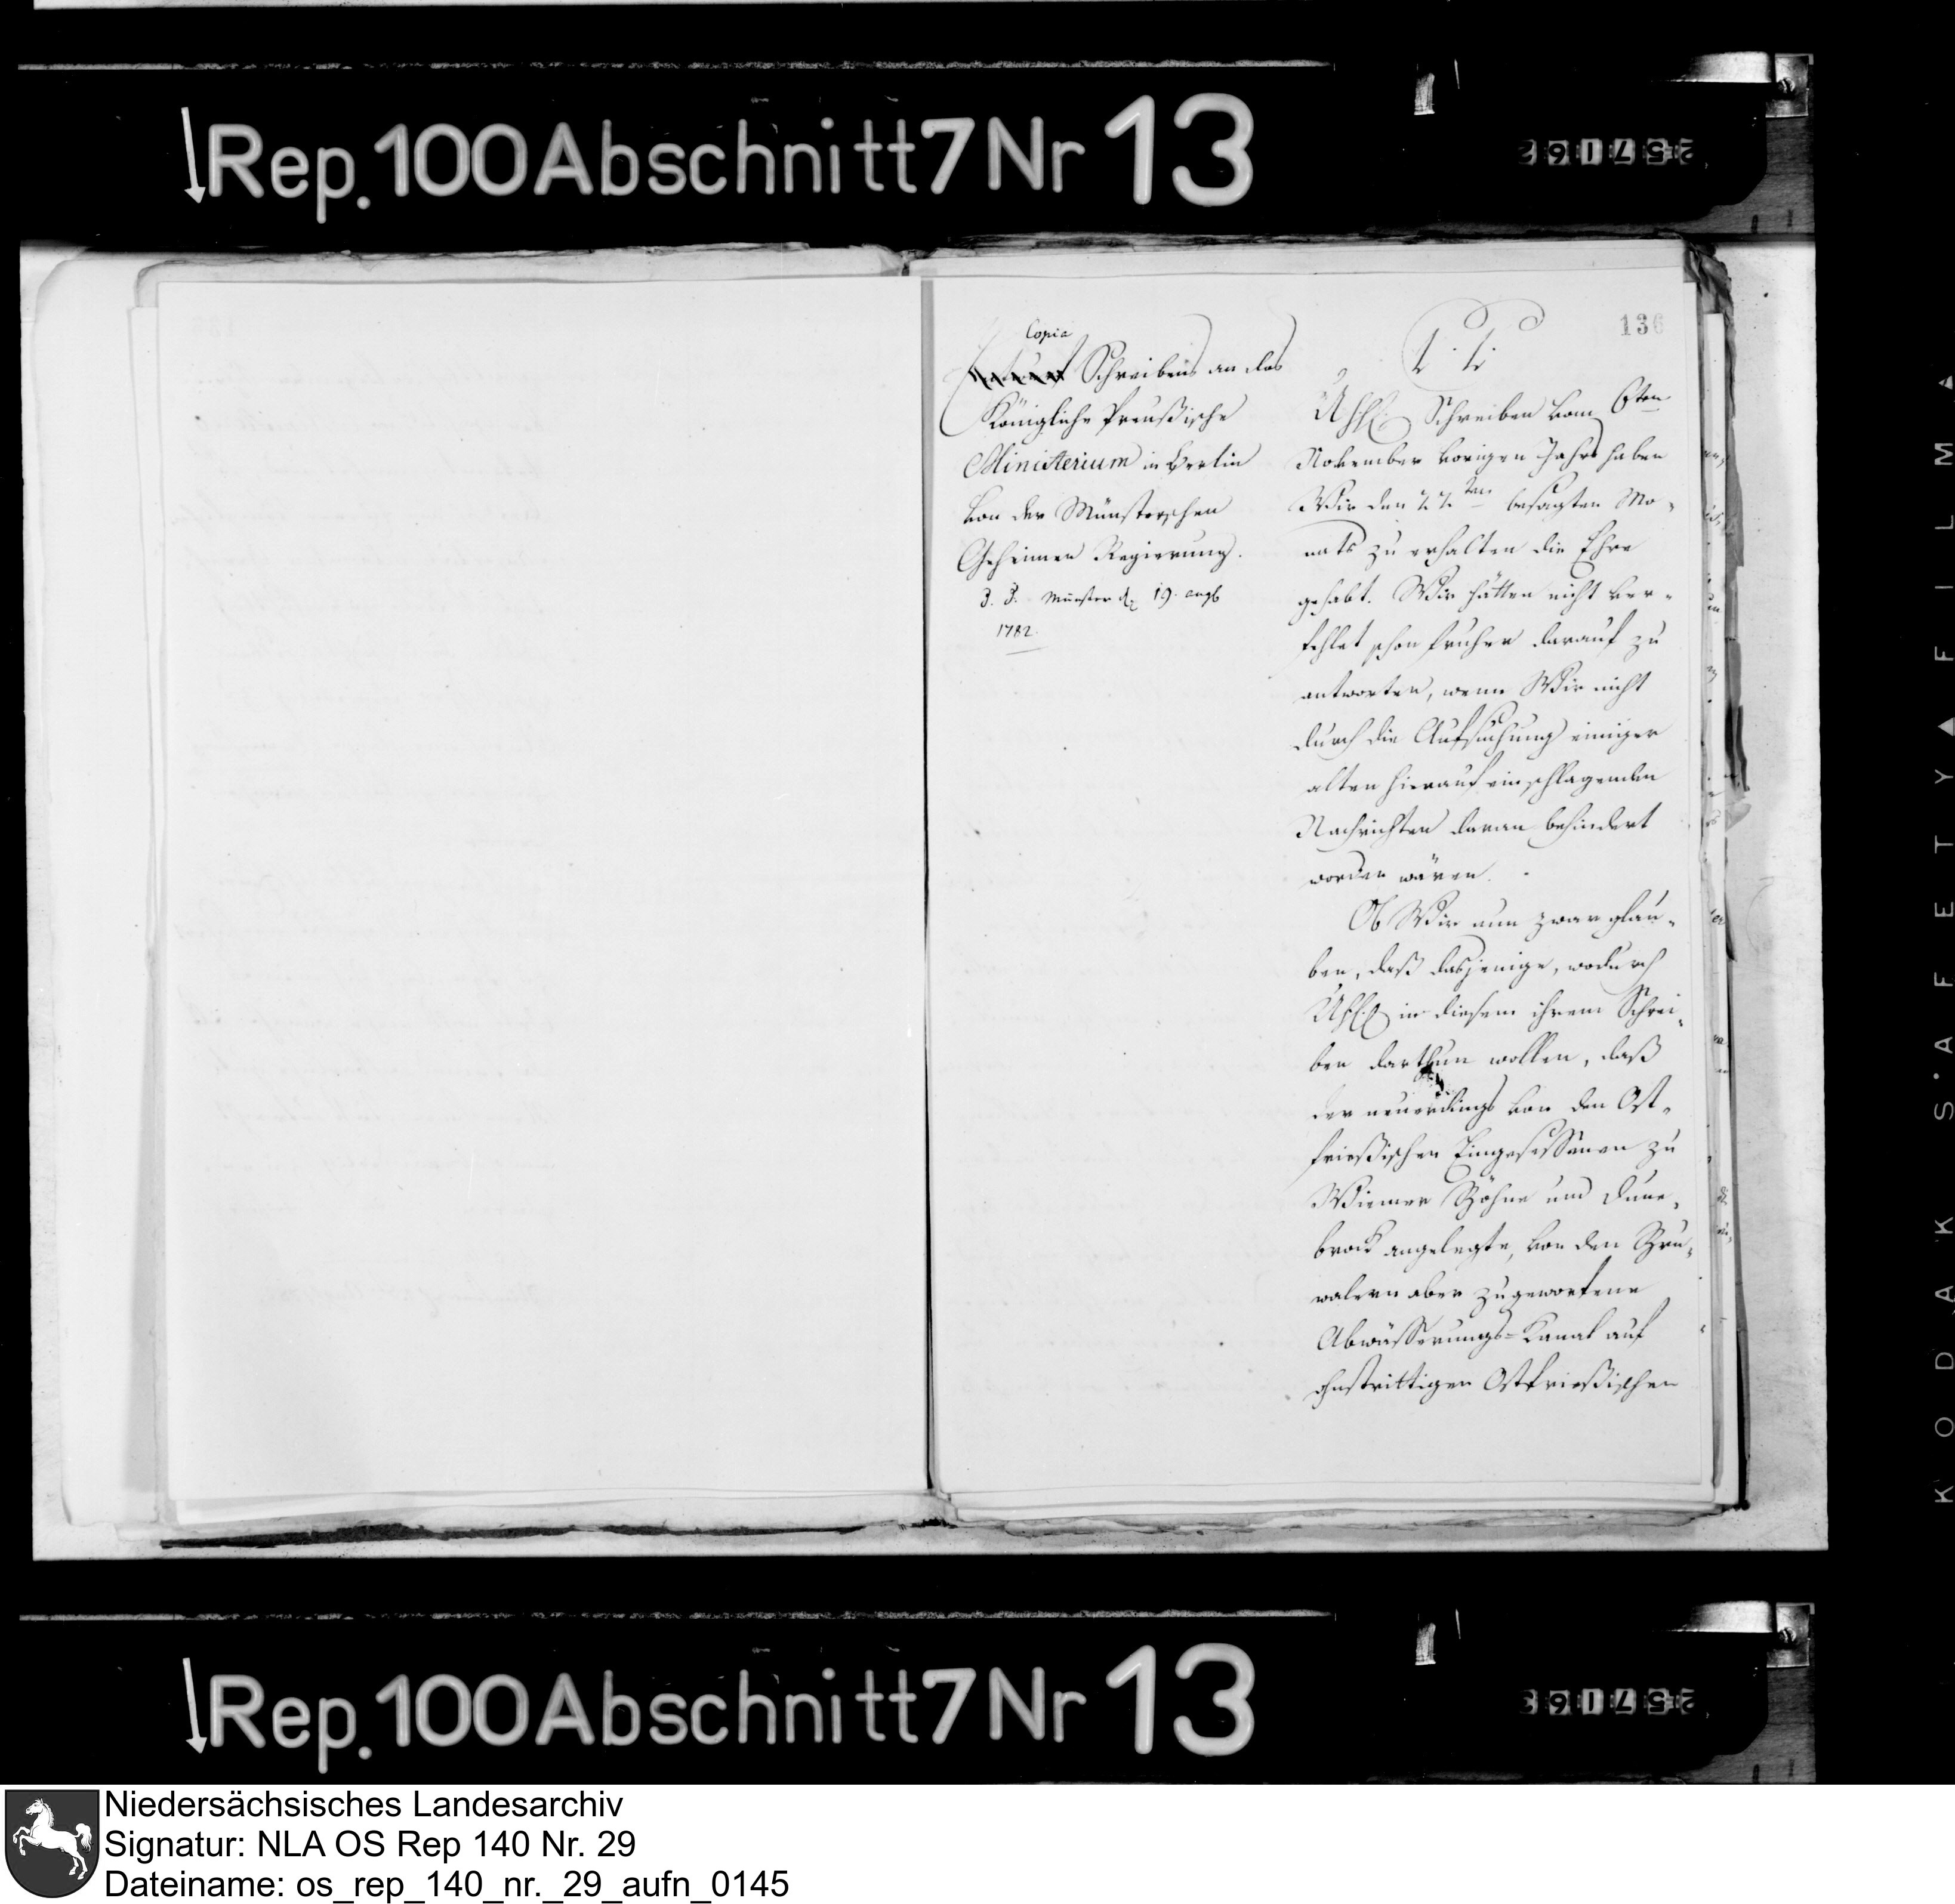 Rep. 100 Abschnitt 7 Nr 13
257162
136
Copia
Schreibens an das
Königliche Preußische
Ministerium in Berlin
von der Münsterschen
Geheimen Regierung.
d. d. Münster d. 19. augs
1782.
Schreiben vom 6ten
November vorigen Jahrs haben
Wir den 22ten besagten Mo-
nats zu erhalten die Ehre
gehabt. Wir hätten nicht ver-
fehlet schon fruher darauf zu
antworten, wenn Wir nicht
durch die Aufsuchung einiger
alten hierauf einschlagenden
Nachrichten daran behindert
worden wären.
Ob Wir nun zwar glau-
ben, daß dasjenige, wodurch
in diesem ihrem Schrei-
ben darthun wollen, daß
der neuerdings von den Ost-
frießischen Eingesessenen zu
Wiemer und Dune-
broek angelegte, von den
walern aber zugeworfene
Abwässerungs-Kanal auf
ohnstrittigen Ostfrießischen
KODAK S·A·F·E·T·Y▲FILM▲
Rep. 100 Abschnitt 7 Nr 13
257163
Niedersächsisches Landesarchiv
Signatur: NLA OS Rep 140 Nr. 29
Dateiname: os_rep_140_nr._29_aufn_0145